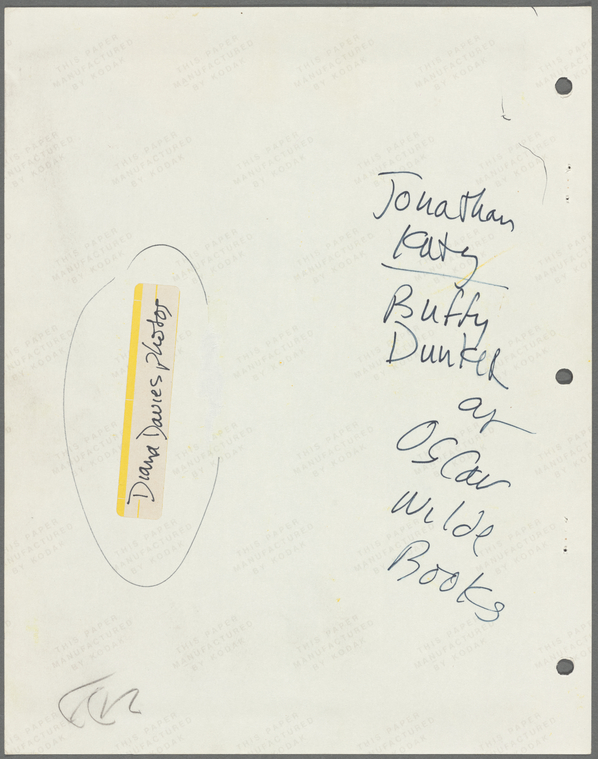 Jonathan
Katz
Buffy
Dunker
at
Oscar
Wilde
Books
Diana Davies photos
THIS PAPER
MANUFACTURED
BY KODAK